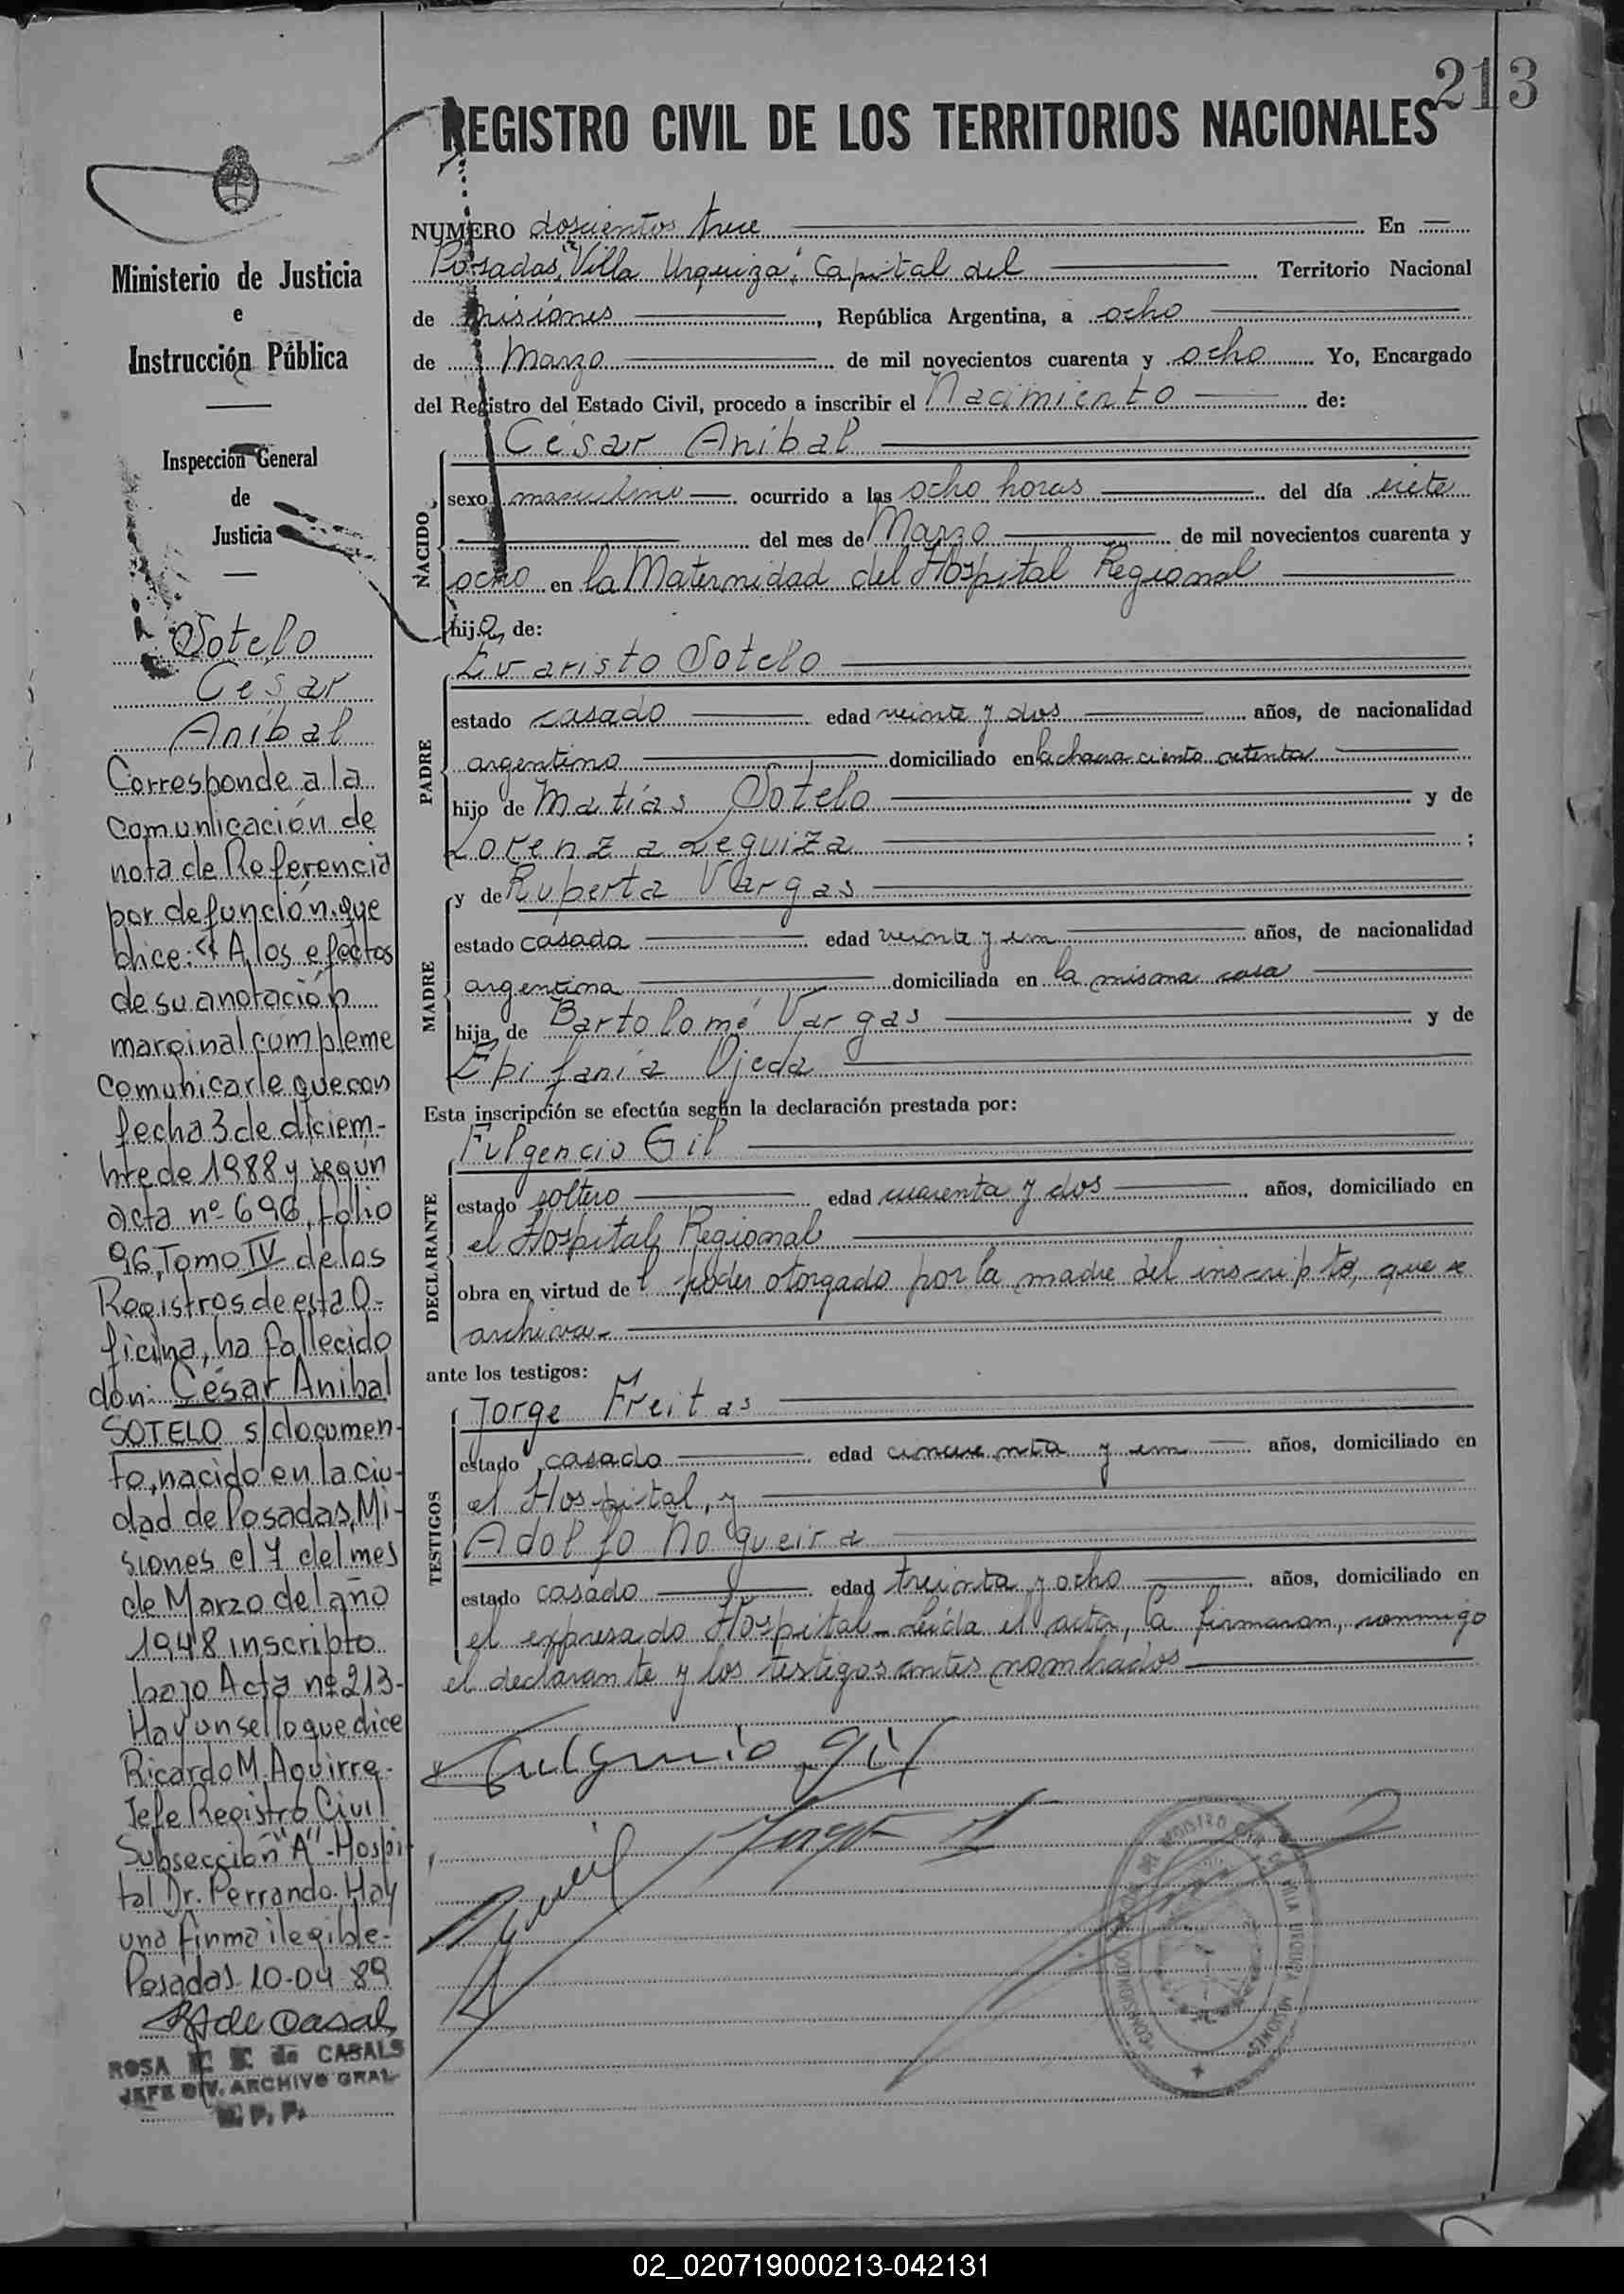 213
REGISTRO CIVIL DE LOS TERRITORIOS NACIONALES
Ministerio de Justicia
e
Instrucción Pública
Inspección General
de
Justicia
Sotelo
César
Aníbal
Corresponde a la
comunicación de
nota de Referencia
por defunción que
dice: "A los efectos
de su anotación
marginal cúmpleme
comunicarle que con
fecha 3 de diciem-
bre de 1988 y según
acta nº 696, folio
96, Tomo IV de los
Registros de esta O-
ficina, ha fallecido
don: César Anibal
SOTELO s/documen-
to, nacido en la ciu-
dad de Posadas, Mi-
siones el 7 del mes
de Marzo del año
1948 inscripto
bajo Acta nº 213-
Hay un sello que dice
Ricardo M. Aguirre-
Jefe Registro Civil
Subsección "A"-Hospi-
tal Dr. Perrando. Hay
una firma ilegible-
Posadas 10-04 89
ROSA de CASALS
JEFE DIV. ARCHIVO GRAL
R. P. P.
NUMERO doscientos trece En
Posadas "Villa Urquiza", Capital del Territorio Nacional
de Misiones, República Argentina, a ocho
de Marzo de mil novecientos cuarenta y ocho Yo, Encargado
del Registro del Estado Civil, procedo a inscribir el Nacimiento de:
NACIDO
César Anibal
sexo masculino ocurrido a las ocho horas del día siete
del mes de Marzo de mil novecientos cuarenta y
ocho en la Maternidad del Hospital Regional
hijo, de:
PADRE
Evaristo Sotelo
estado casado edad veinte y dos años, de nacionalidad
argentino domiciliado en la chacra ciento setenta
hijo de Matías Sotelo y de
Lorenza Leguiza ;
MADRE
y de Ruperta Vargas
estado casada edad veinte y un años, de nacionalidad
argentina domiciliada en la misma casa
hija de Bartolomé Vargas y de
Epifania Ojeda
Esta inscripción se efectúa según la declaración prestada por:
DECLARANTE
Fulgencio Gil
estado soltero edad cuarenta y dos años, domiciliado en
el Hospital Regional
obra en virtud del poder otorgado por la madre del inscripto, que se
archiva-
ante los testigos:
TESTIGOS
Jorge Freitas
estado casado edad cincuenta y un años, domiciliado en
el Hospital, y
Adolfo Nogueira
estado casado edad treinta y ocho años, domiciliado en
el expresado Hospital- Leída el acta, la firmaron, conmigo
el declarante y los testigos antes nombrados-
Fulgencio Gil
02_020719000213-042131